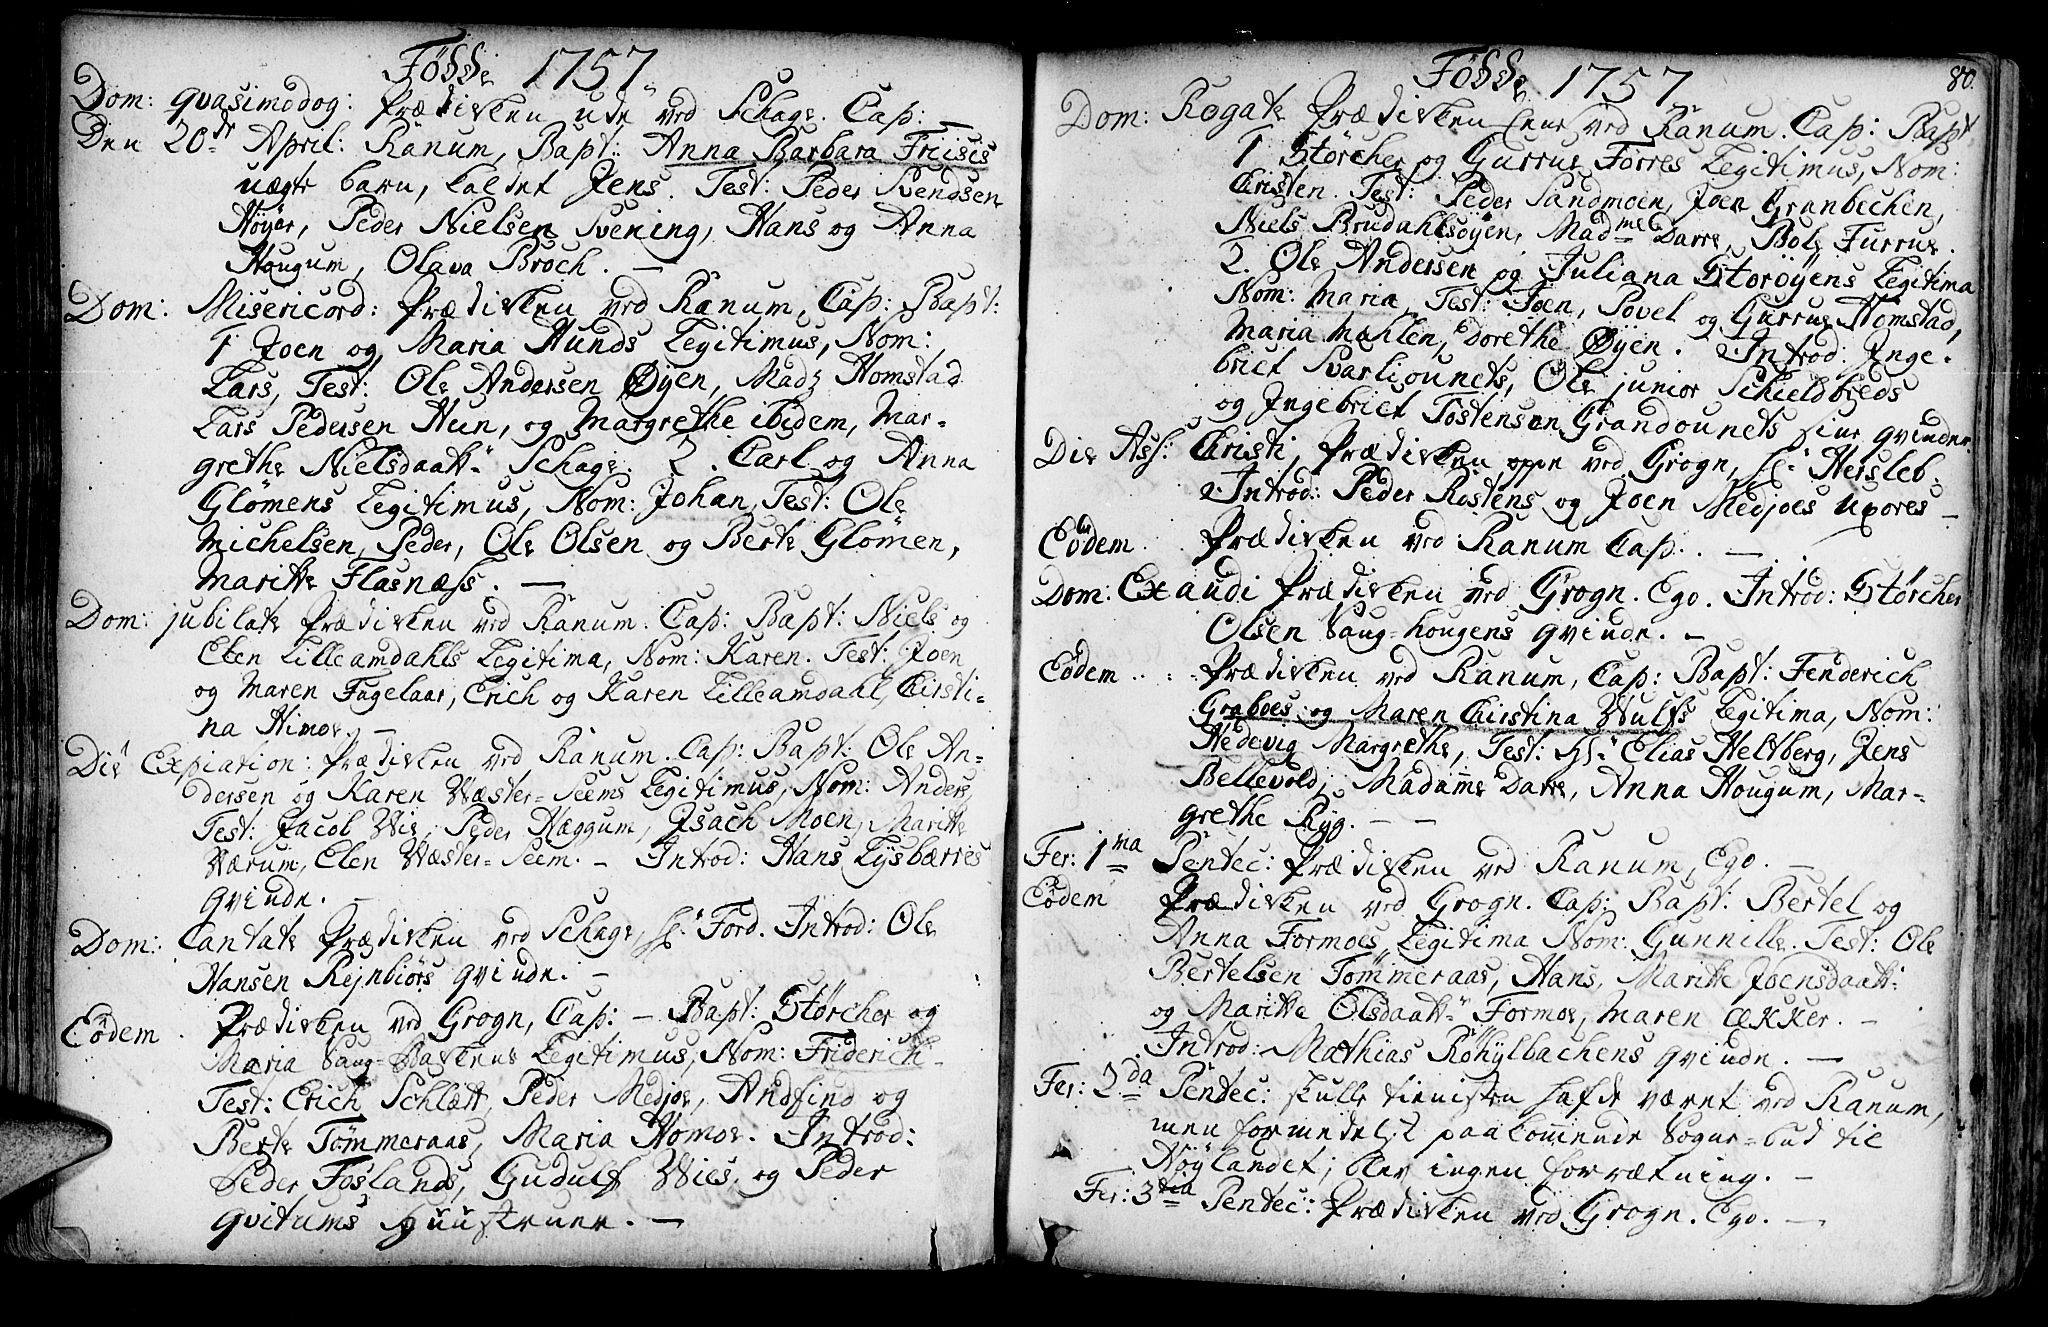 Födde 1757
Dom: qvasimodog: Prædicken ude ved Schage. Cap: —
Den 20de April: Ranum, Bapt: Anna Barbara Friises
uægte barn, kaldet Jens. Test: Peder Svendsen
Høyer, Peder Nielsen Svening, Hans og Anna
Hougum, Olava Broch. —
Dom: Misericord: Prædicken ved Ranum, Cap: Bapt:
1 Joen og Maria Hunds Legitimus, Nom:
Lars, Test: Ole Andersen Øyen, Madz Homstad
Lars Pedersen Hun, og Margrethe ibidem, Mar-
grethe Nielsdaatt: Schage. 2. Carl og Anna
Glömens Legitimus, Nom: Johan, Test: Ole
Michelsen, Peder, Ole Olsen og Berte Glömen,
Maritte Flasnæss. —
Dom: jubilate Prædicken ved Ranum. Cap: Bapt: Niels og
Elen Lilleamdahls Legitima, Nom: Karen. Test: Joen
og Maren Fugelaar, Erich og Karen Lilleamdahl, Christi-
na Himoe. —
Die Expiation: Prædicken ved Ranum. Cap: Bapt: Ole An-
dersen og Karen Wæster-Seems Legitimus, Nom: Anders
Test: Jacob Wie, Peder Hæggum, Jsach Moen, Maritte
Værum, Elen Wæster-Seem. — Introd: Hans Lysbærres
qvinde.
Dom: Cantate Prædicken ved Schage, Hr. Ford. Introd: Ole
Hansen Rejnbiörs qvinde. —
Eödem. Prædicken ved Grogn, Cap: — Bapt: Størcher og
Maria Saug-Backens Legitimus, Nom: Friderich
Test: Erich Schlætt, Peder Medjoe, Andfind og
Berte Tömmeraas, Maria Homoe. Introd:
Peder Foslands, Gudulf Wies, og Peder
Qvitums Huustruer. —
80.
Födde 1757
Dom: Rogate Prædicken heme ved Ranum. Cap: Bapt
1 Størcher og Gurrue Forres Legitimus, Nom:
Christen. Test: Peder Sandmoen, Joen Grønbechen,
Niels Brudahlsöyen, Madme Darre, Bole Furrue.
2. Ole Andersen og Juliana Storöyens Legitima
Nom: Maria, Test: Joen, Povel og Gurrue Homstad,
Maria Mahlen, Dorethe Øyen. Introd: Inge-
briet Svarliounets, Ole junior Schieldbreds
og Ingebriet Tostensen Grandounets sine qvinder.
Die Ass: Christi, Prædicken oppe ved Grogn, Hr. Hersleb.
Introd: Peder Rostens og Joen Medjoes uxores —
Eodem. Prædicken ved Ranum Cap: —
Dom: Exaudi Prædicken ved Grogn. Ego. Introd: Størcher
Olsen Saug-hougens qvinde. —
Eödem . . . Prædicken ved Ranum, Cap: Bapt: Fenderich
Graboes og Maren Christina Wulfs Legitima, Nom:
Hedevig Margrethe, Test: Hr. Elias Heltberg, Jens
Bellevold, Madamme Darre, Anna Hougum, Mar-
grethe Ryg. — —
Fer: 1ma Pentec: Prædicken ved Ranum, Ego. —
Eödem Prædicken ved Grogn. Cap: Bapt: Bertel og
Anna Formoes Legitima Nom: Gunnille. Test: Ole
Bertelsen Tömmeraas, Hans, Maritte Joensdaatt:
og Maritte Olsdaatt: Formoe, Maren Ækker. —
Introd: Mathias Röhylbachens qvinde. —
Fer: 2da Pentec: skulle tienisten hafde været ved Ranum,
men formedelst paakommende Sogne-bud til
Höylandet; blev ingen forrætning. —
Fer: 3tia Pentec: Prædicken ved Grogn. Ego. —